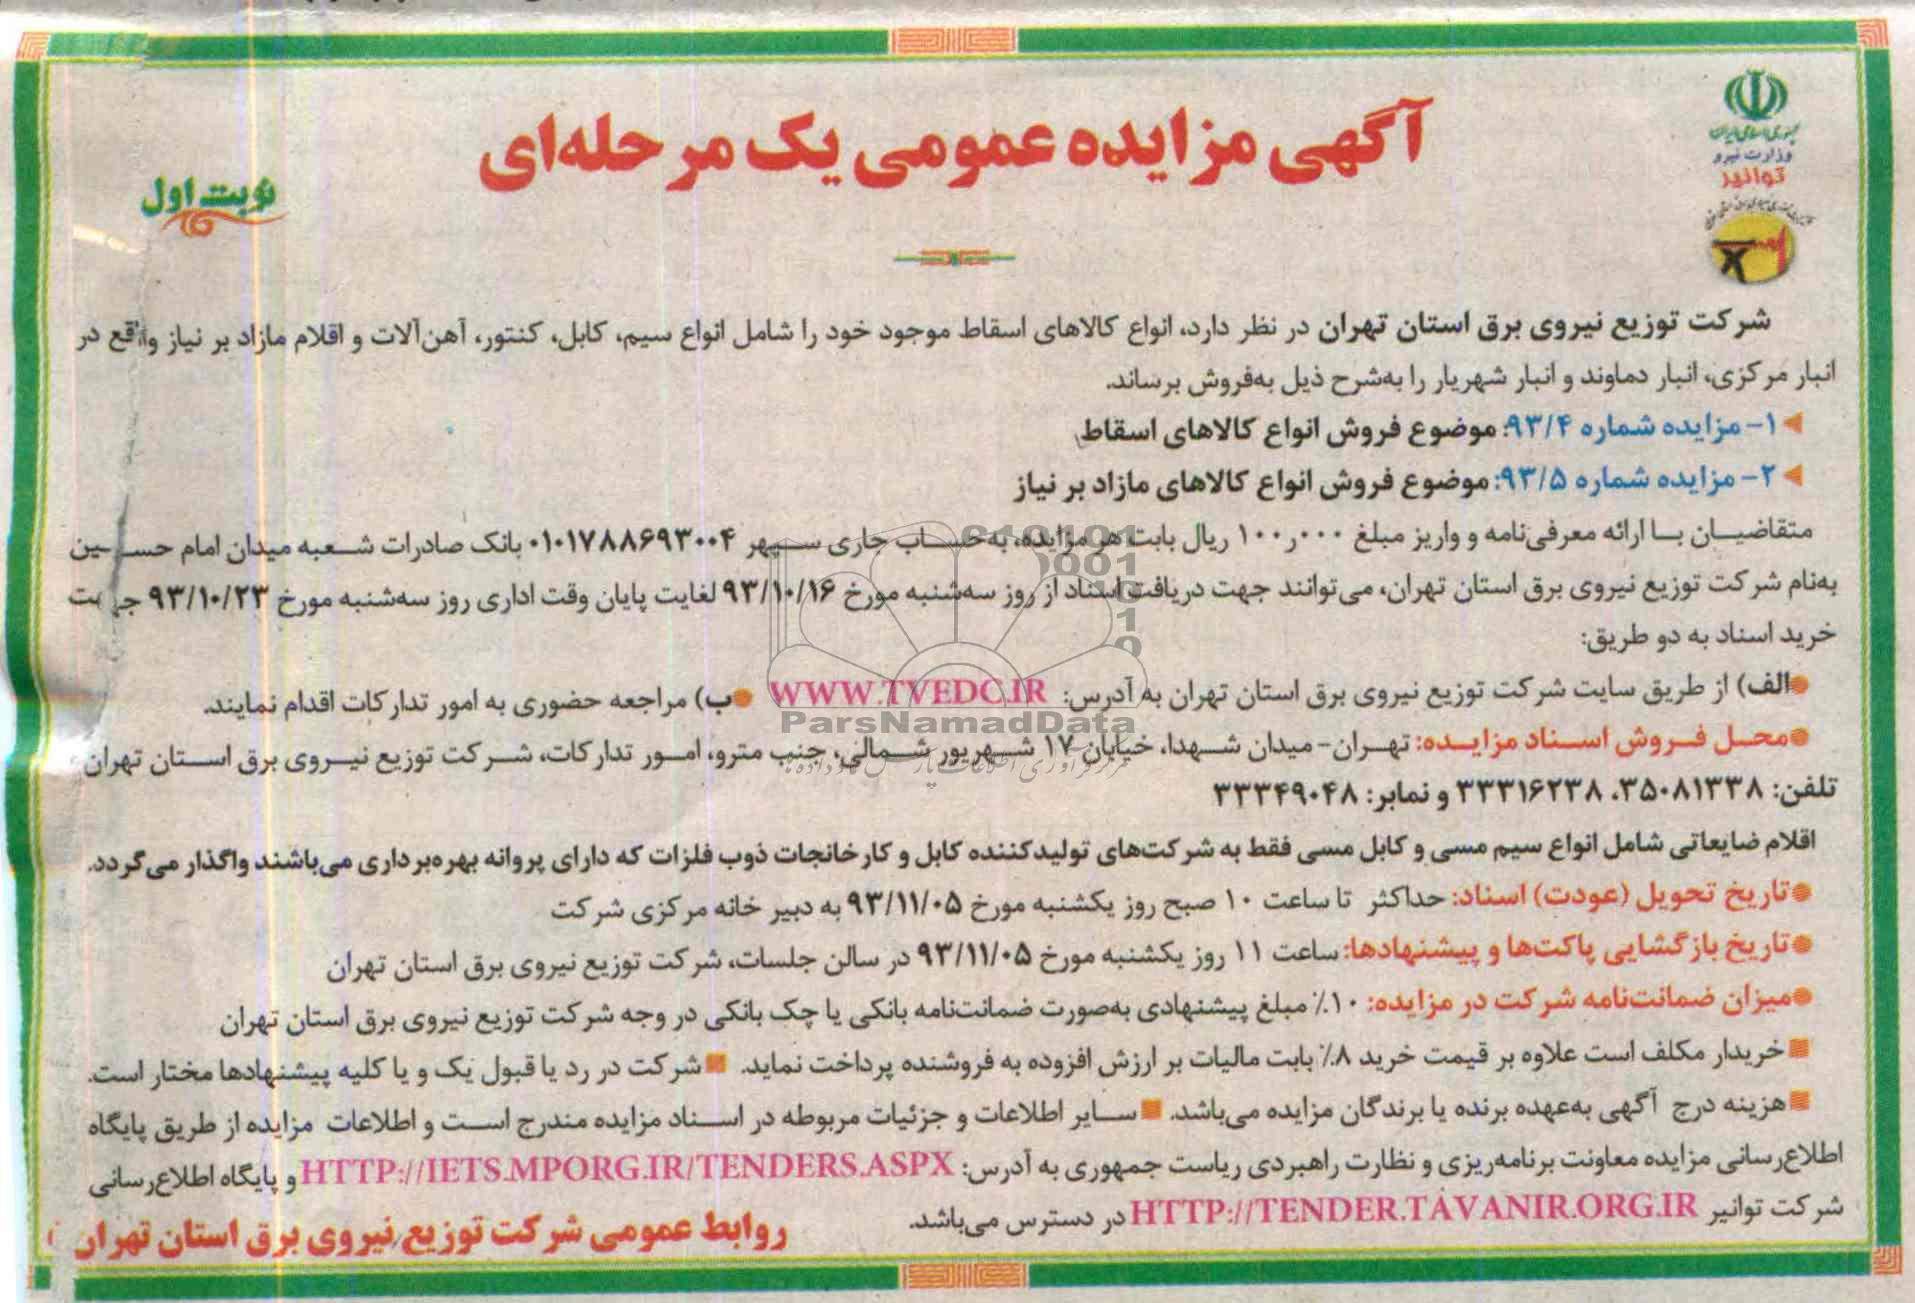 جمهوری اسلامی ایران
وزارت نیرو
توانیر
آگهی مزایده عمومی یک مرحله‌ای
نوبت اول
شرکت توزیع نیروی برق استان تهران در نظر دارد، انواع کالاهای اسقاط موجود خود را شامل انواع سیم، کابل، کنتور، آهن‌آلات و اقلام مازاد بر نیاز واقع در
انبار مرکزی، انبار دماوند و انبار شهریار را به‌شرح ذیل به‌فروش برساند.
۱- مزایده شماره ۹۳/۴: موضوع فروش انواع کالاهای اسقاط
۲- مزایده شماره ۹۳/۵: موضوع فروش انواع کالاهای مازاد بر نیاز
متقاضیان با ارائه معرفی‌نامه و واریز مبلغ ۱۰۰٫۰۰۰ ریال بابت هر مزایده، به حساب جاری سپهر ۰۱۰۱۷۸۸۶۹۳۰۰۴ بانک صادرات شعبه میدان امام حسین
به‌نام شرکت توزیع نیروی برق استان تهران، می‌توانند جهت دریافت اسناد از روز سه‌شنبه مورخ ۹۳/۱۰/۱۶ لغایت پایان وقت اداری روز سه‌شنبه مورخ ۹۳/۱۰/۲۳ جهت
خرید اسناد به دو طریق:
الف) از طریق سایت شرکت توزیع نیروی برق استان تهران به آدرس: WWW.TVEDC.IR ب) مراجعه حضوری به امور تدارکات اقدام نمایند.
ParsNamadData
محل فروش اسناد مزایده: تهران- میدان شهدا، خیابان ۱۷ شهریور شمالی، جنب مترو، امور تدارکات، شرکت توزیع نیروی برق استان تهران،
تلفن: ۳۵۰۸۱۳۳۸، ۳۳۳۱۶۲۳۸ و نمابر: ۳۳۳۴۹۰۴۸
اقلام ضایعاتی شامل انواع سیم مسی و کابل مسی فقط به شرکت‌های تولیدکننده کابل و کارخانجات ذوب فلزات که دارای پروانه بهره‌برداری می‌باشند واگذار می‌گردد.
تاریخ تحویل (عودت) اسناد: حداکثر تا ساعت ۱۰ صبح روز یکشنبه مورخ ۹۳/۱۱/۰۵ به دبیر خانه مرکزی شرکت
تاریخ بازگشایی پاکت‌ها و پیشنهادها: ساعت ۱۱ روز یکشنبه مورخ ۹۳/۱۱/۰۵ در سالن جلسات، شرکت توزیع نیروی برق استان تهران
میزان ضمانت‌نامه شرکت در مزایده: ۱۰٪ مبلغ پیشنهادی به‌صورت ضمانت‌نامه بانکی یا چک بانکی در وجه شرکت توزیع نیروی برق استان تهران
خریدار مکلف است علاوه بر قیمت خرید ۸٪ بابت مالیات بر ارزش افزوده به فروشنده پرداخت نماید. شرکت در رد یا قبول یک و یا کلیه پیشنهادها مختار است.
هزینه درج آگهی به‌عهده برنده یا برندگان مزایده می‌باشد. سایر اطلاعات و جزئیات مربوطه در اسناد مزایده مندرج است و اطلاعات مزایده از طریق پایگاه
اطلاع‌رسانی مزایده معاونت برنامه‌ریزی و نظارت راهبردی ریاست جمهوری به آدرس: HTTP://IETS.MPORG.IR/TENDERS.ASPX و پایگاه اطلاع‌رسانی
شرکت توانیر HTTP://TENDER.TAVANIR.ORG.IR در دسترس می‌باشد.
روابط عمومی شرکت توزیع نیروی برق استان تهران